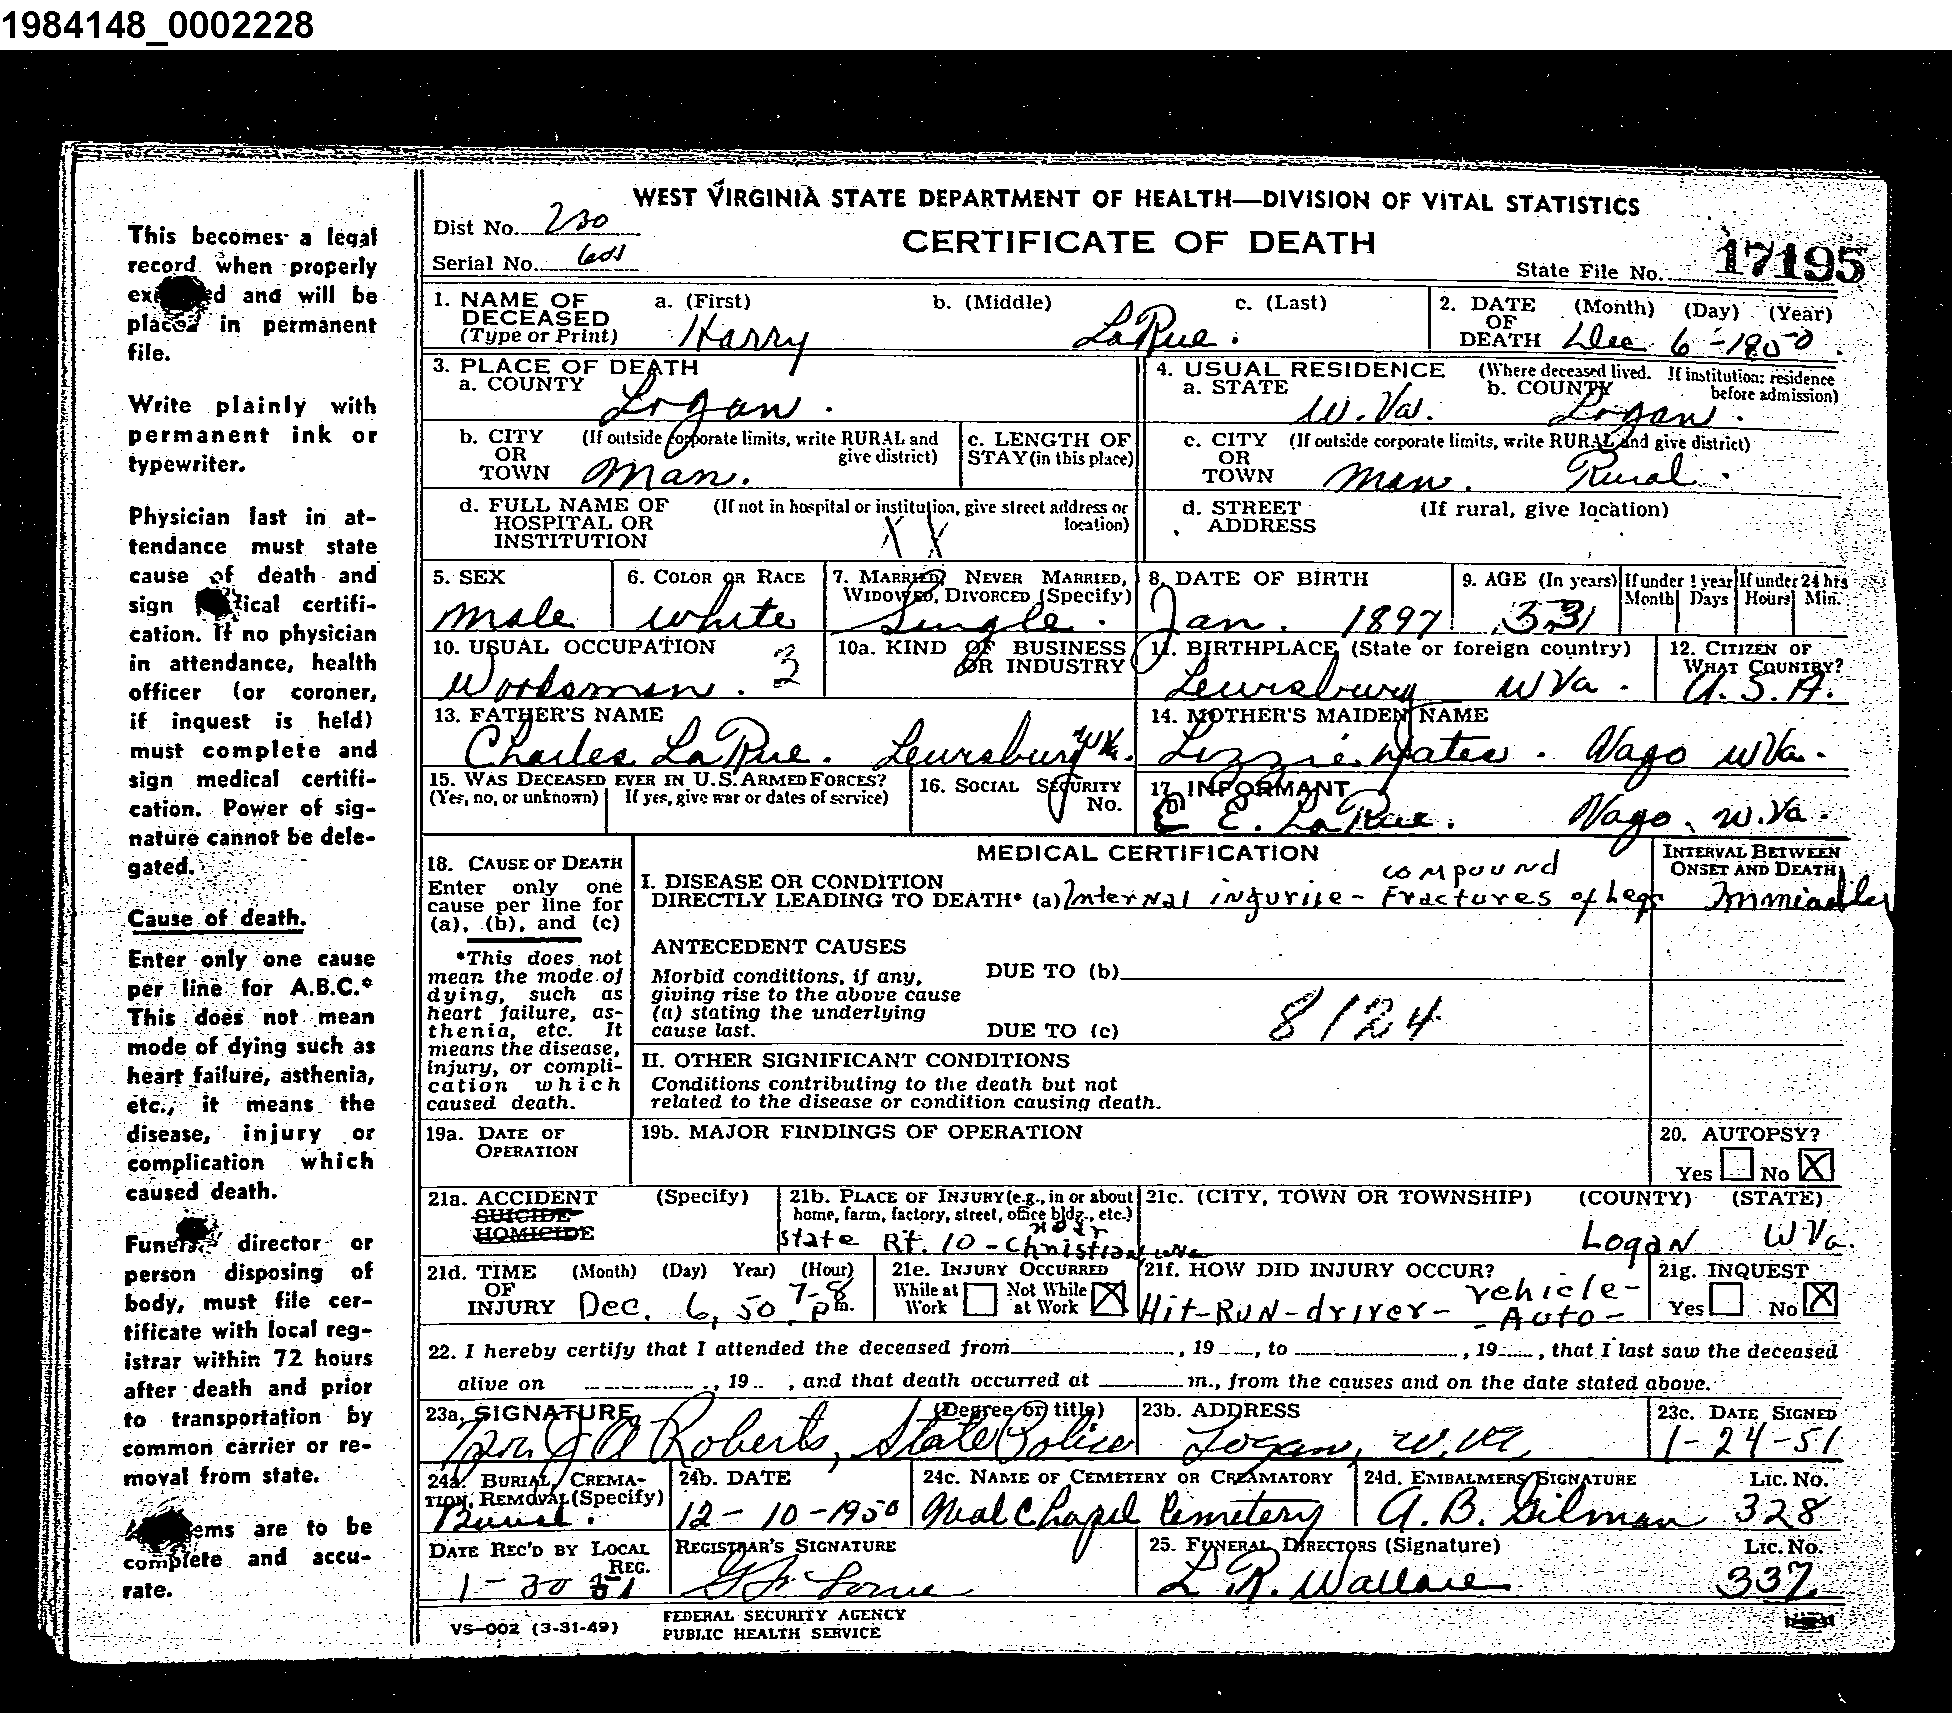 1984148_0002228
WEST VIRGINIA STATE DEPARTMENT OF HEALTH—DIVISION OF VITAL STATISTICS
Dist No. 230
CERTIFICATE OF DEATH
Serial No.
State File No. 17195
This becomes a legal
record when properly
and will be
placed in permanent
file.
Write plainly with
permanent ink or
typewriter.
Physician last in at-
tendance must state
cause of death and
sign certifi-
cation. If no physician
in attendance, health
officer (or coroner,
if inquest is held)
must complete and
sign medical certifi-
cation. Power of sig-
nature cannot be dele-
gated.
Cause of death.
Enter only one cause
per line for A.B.C.*
This does not mean
mode of dying such as
heart failure, asthenia,
etc., it means the
disease, injury or
complication which
caused death.
Funeral director or
person disposing of
body, must file cer-
tificate with local reg-
istrar within 72 hours
after death and prior
to transportation by
common carrier or re-
moval from state.
are to be
complete and accu-
rate.
1. NAME OF DECEASED (Type or Print) a. (First) b. (Middle) c. (Last)
Harry LaRue.
2. DATE OF DEATH (Month) (Day) (Year)
Dec 6-1950.
3. PLACE OF DEATH
a. COUNTY
Logan.
4. USUAL RESIDENCE (Where deceased lived. If institution: residence before admission)
a. STATE W. Va. b. COUNTY Logan.
b. CITY OR TOWN (If outside corporate limits, write RURAL and give district)
Man.
c. LENGTH OF STAY (in this place)
c. CITY OR TOWN (If outside corporate limits, write RURAL and give district)
Man. Rural.
d. FULL NAME OF HOSPITAL OR INSTITUTION (If not in hospital or institution, give street address or location)
X X
d. STREET ADDRESS (If rural, give location)
5. SEX
Male
6. COLOR OR RACE
White
7. MARRIED, NEVER MARRIED, WIDOWED, DIVORCED (Specify)
Single.
8. DATE OF BIRTH
Jan. 1897
9. AGE (In years) If under 1 year Month Days If under 24 hrs Hours Min.
10. USUAL OCCUPATION
Woodsman. 3
10a. KIND OF BUSINESS OR INDUSTRY
11. BIRTHPLACE (State or foreign country)
Lewisburg W Va.
12. CITIZEN OF WHAT COUNTRY?
U.S.A.
13. FATHER'S NAME
Charles LaRue. Lewisburg W Va.
14. MOTHER'S MAIDEN NAME
Lizzie Yates. Vago W Va.
15. WAS DECEASED EVER IN U.S. ARMED FORCES?
(Yes, no, or unknown) If yes, give war or dates of service)
16. SOCIAL SECURITY No.
17. INFORMANT
E. LaRue. Vago, W. Va.
MEDICAL CERTIFICATION
18. CAUSE OF DEATH
Enter only one
cause per line for
(a), (b), and (c)
*This does not
mean the mode of
dying, such as
heart failure, as-
thenia, etc. It
means the disease,
injury, or compli-
cation which
caused death.
I. DISEASE OR CONDITION
DIRECTLY LEADING TO DEATH* (a) Internal injurise - compound Fractures of Legs
INTERVAL BETWEEN ONSET AND DEATH
ANTECEDENT CAUSES
Morbid conditions, if any,
giving rise to the above cause
(a) stating the underlying
cause last.
DUE TO (b)
DUE TO (c)
8124
II. OTHER SIGNIFICANT CONDITIONS
Conditions contributing to the death but not
related to the disease or condition causing death.
19a. DATE OF OPERATION
19b. MAJOR FINDINGS OF OPERATION
20. AUTOPSY?
Yes No X
21a. ACCIDENT (Specify)
SUICIDE
HOMICIDE
21b. PLACE OF INJURY (e.g., in or about home, farm, factory, street, office bldg., etc.)
State Rt. 10 - near Christian, WVa
21c. (CITY, TOWN OR TOWNSHIP) (COUNTY) (STATE)
Logan W Va.
21d. TIME OF INJURY (Month) (Day) Year) (Hour)
Dec. 6, 50 7-8 Pm.
21e. INJURY OCCURRED
While at Work Not While at Work X
21f. HOW DID INJURY OCCUR?
Hit-RUN-driver- vehicle-
-Auto-
21g. INQUEST
Yes No X
22. I hereby certify that I attended the deceased from , 19 , to , 19 , that I last saw the deceased
alive on , 19 , and that death occurred at m., from the causes and on the date stated above.
23a. SIGNATURE (Degree or title)
Roberts, State Police
23b. ADDRESS
Logan, W. Va.
23c. DATE SIGNED
1-24-51
24a. BURIAL, CREMA-
TION, REMOVAL (Specify)
Burial.
24b. DATE
12-10-1950
24c. NAME OF CEMETERY OR CREAMATORY
Neal Chapel Cemetery
24d. EMBALMERS SIGNATURE Lic. No.
A. B. Gilman 328
DATE REC'D BY LOCAL REG.
1-30 51
REGISTRAR'S SIGNATURE
25. FUNERAL DIRECTORS (Signature) Lic. No.
L. R. Wallace 337
VS-002 (3-31-49)
FEDERAL SECURITY AGENCY
PUBLIC HEALTH SERVICE